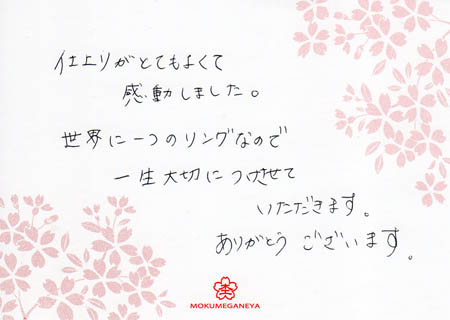 仕上りがとてもよくて
感動しました。
世界に一つのリングなので
一生大切につけさせて
いただきます。
ありがとう ございます。
MOKUMEGANEYA